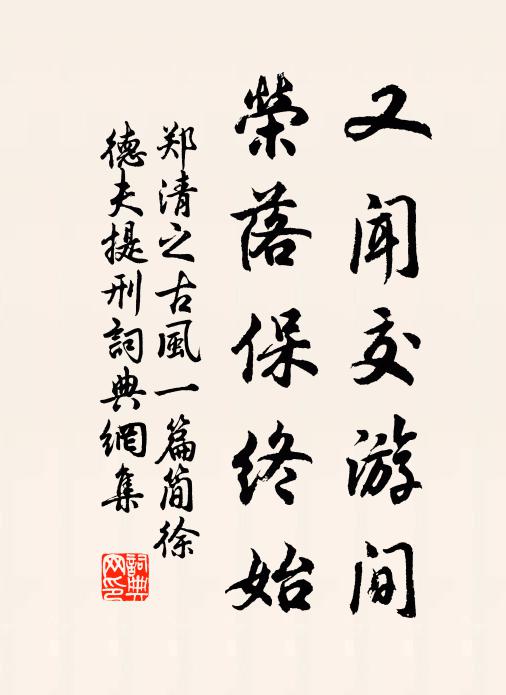 又闻交游间
荣落保终始
郑清之古風一篇简徐
德夫提刑詞典網集
詞典
网印